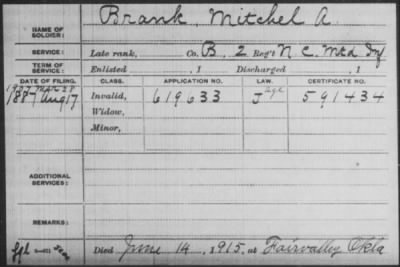 Brank, Mitchel A.
NAME OF SOLDIER:
SERVICE: Late rank, Co. B, 2 Reg't N C. Mtd Inf
TERM OF SERVICE: Enlisted , 1 Discharged , 1
DATE OF FILING. CLASS. APPLICATION NO. LAW. CERTIFICATE NO.
1907 Mar 28 Age
1887 Aug 17 Invalid, 619633 J 591434
Widow,
Minor,
ADDITIONAL SERVICES:
REMARKS:
Died June 14, 1915, at Fairvalley Okla